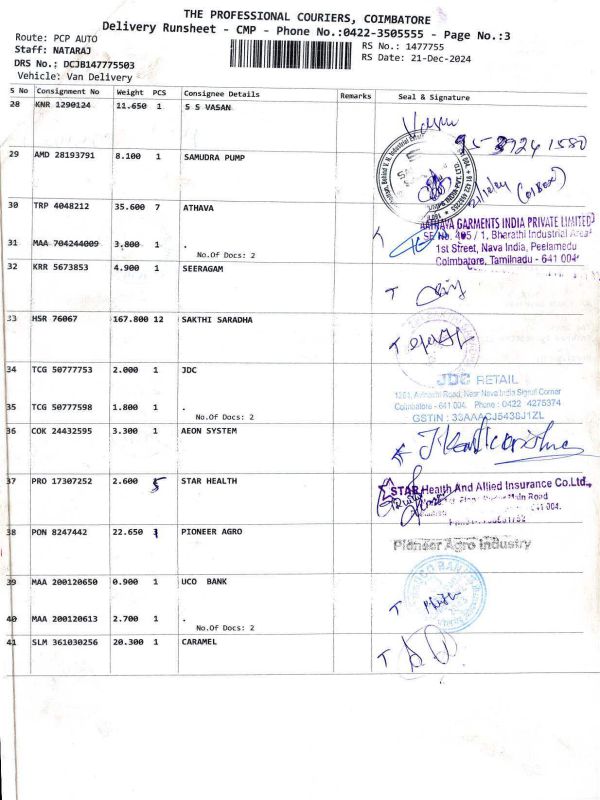 THE PROFESSIONAL COURIERS, COIMBATORE
Delivery Runsheet - CMP - Phone No.:0422-3505555 - Page No.:3
Route: PCP AUTO
RS No.: 1477755
Staff: NATARAJ
RS Date: 21-Dec-2024
DRS No.: DCJB147775503
Vehicle: Van Delivery
S No Consignment No Weight PCS Consignee Details Remarks Seal & Signature
28 KNR 1290124 11.650 1 S S VASAN
9539241580
29 AMD 28193791 8.100 1 SAMUDRA PUMP
21/12/24 (01Box)
30 TRP 4048212 35.600 7 ATHAVA
AATHAVA GARMENTS INDIA PRIVATE LIMITED
31 MAA 704244009 3.800 1 .
SF No. 405 / 1, Bharathi Industrial Area
No.Of Docs: 2
1st Street, Nava India, Peelamedu
32 KRR 5673853 4.900 1 SEERAGAM
Coimbatore, Tamilnadu - 641 004
T
33 HSR 76067 167.800 12 SAKTHI SARADHA
T
34 TCG 50777753 2.000 1 JDC
JDC RETAIL
1261, Avinashi Road, Near Nava India Signal Corner
35 TCG 50777598 1.800 1 .
Coimbatore - 641 004. Phone : 0422 4275374
No.Of Docs: 2
GSTIN : 33AAACJ5438J1ZL
36 COK 24432595 3.300 1 AEON SYSTEM
37 PRO 17307252 2.600 5 STAR HEALTH
STAR Health And Allied Insurance Co.Ltd.,
Main Road
641 004.
38 PON 8247442 22.650 1 PIONEER AGRO
Pioneer Agro Industry
39 MAA 200120650 0.900 1 UCO BANK
UCO BANK
40 MAA 200120613 2.700 1 .
T
No.Of Docs: 2
41 SLM 361030256 20.300 1 CARAMEL
T